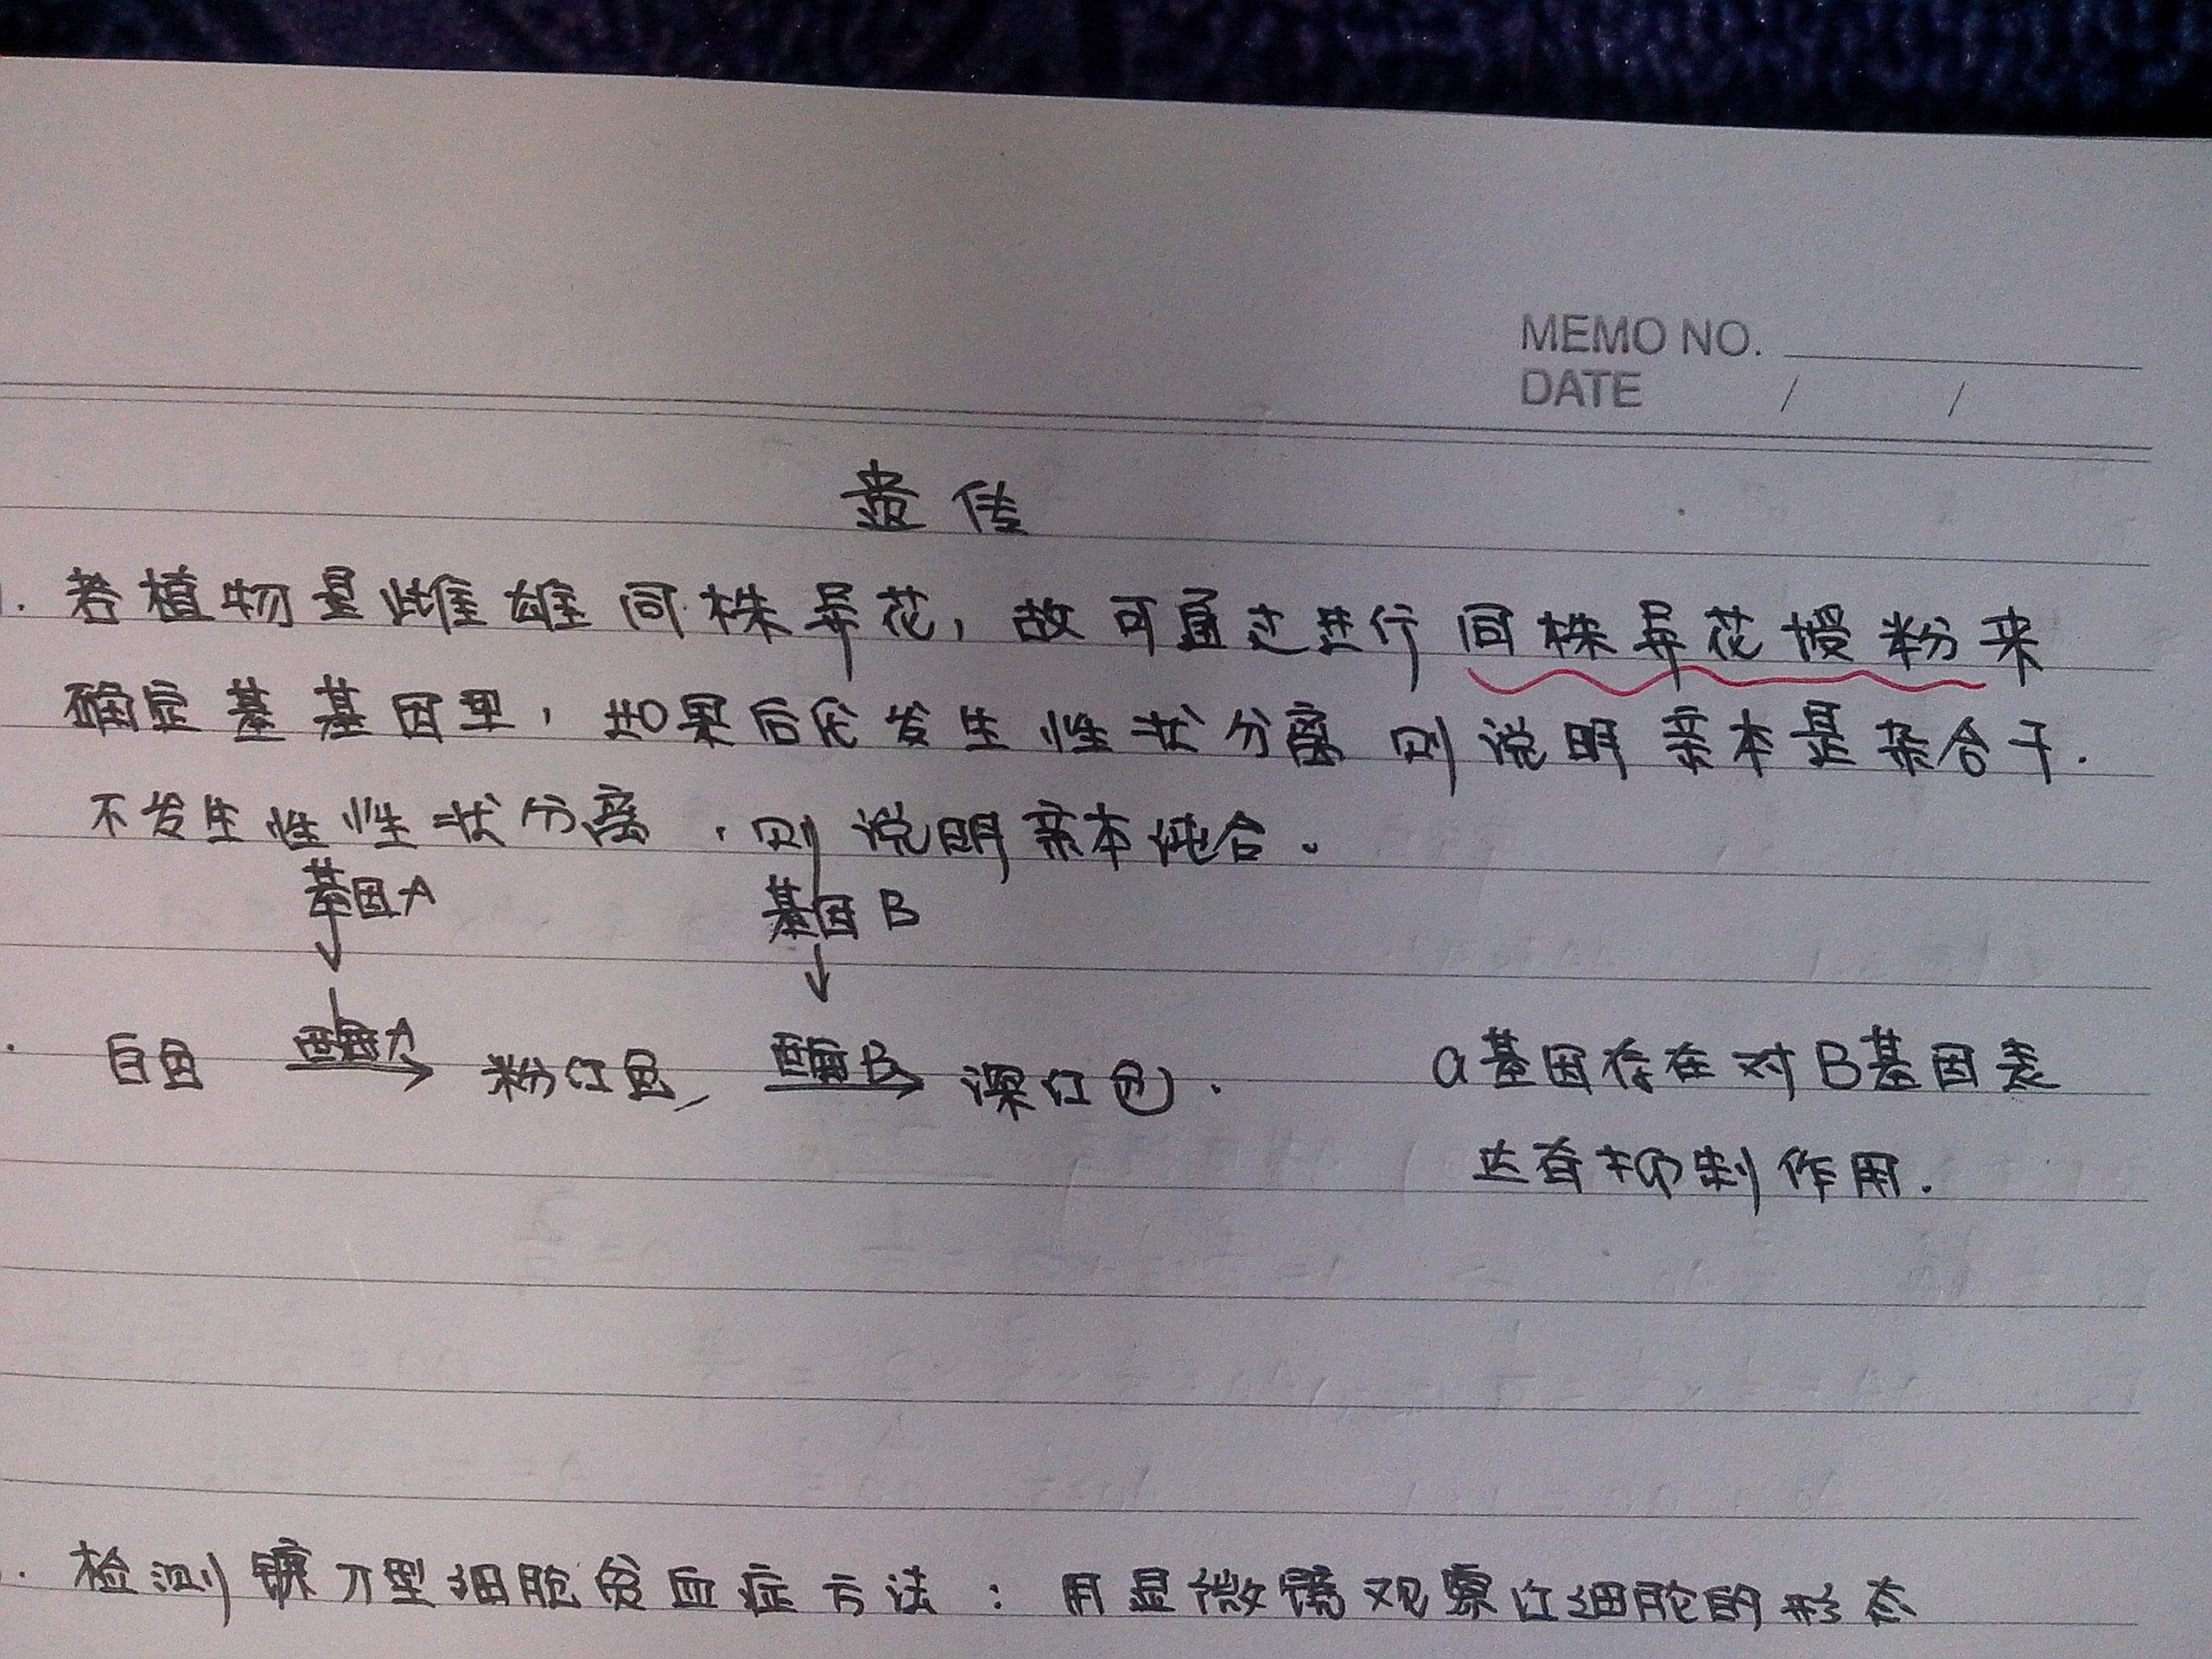 MEMO NO.
DATE / /
遗传
. 若植物是雌雄同株异花，故可通过进行同株异花授粉来
确定基基因型，如果后代发生性状分离 则说明亲本是杂合子.
不发生性性状分离，则说明亲本纯合。
基因A 基因B
↓ ↓
. 白色 酶A→ 粉红色 酶B→ 深红色. a基因存在对B基因表
达有抑制作用.
. 检测镰刀型细胞贫血症方法：用显微镜观察红细胞的形态